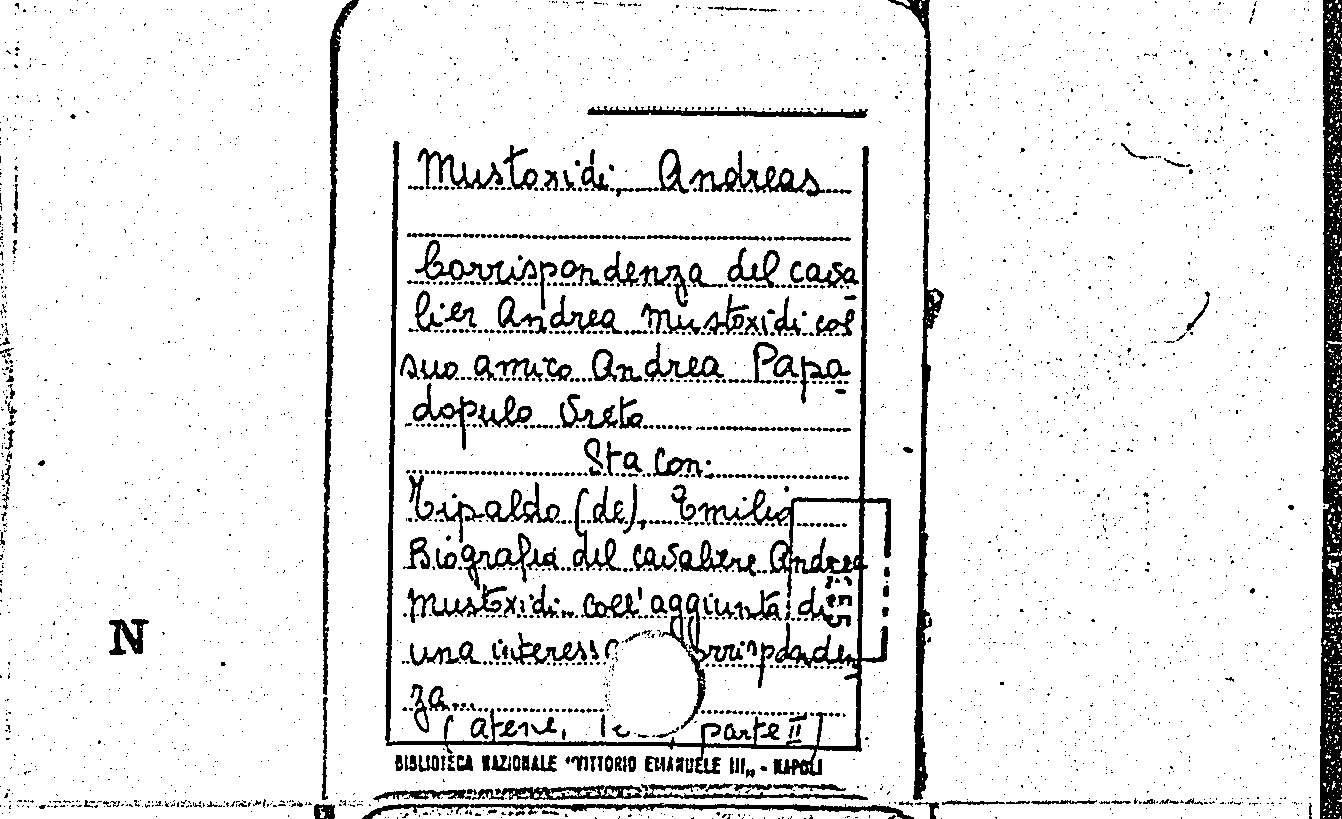 Mustoxidi, Andreas
Corrispondenza del cava
lier Andrea Mustoxidi col
suo amico Andrea Papa
dopulo Vreto
Sta con:
Tipaldo (de), Emilio
Biografia del cavaliere Andrea
Mustoxidi.. coll'aggiunta di
una interess rrisponden
za...
(Atene, parte II)
N
BIBLIOTECA NAZIONALE "VITTORIO EMANUELE III„ - NAPOLI